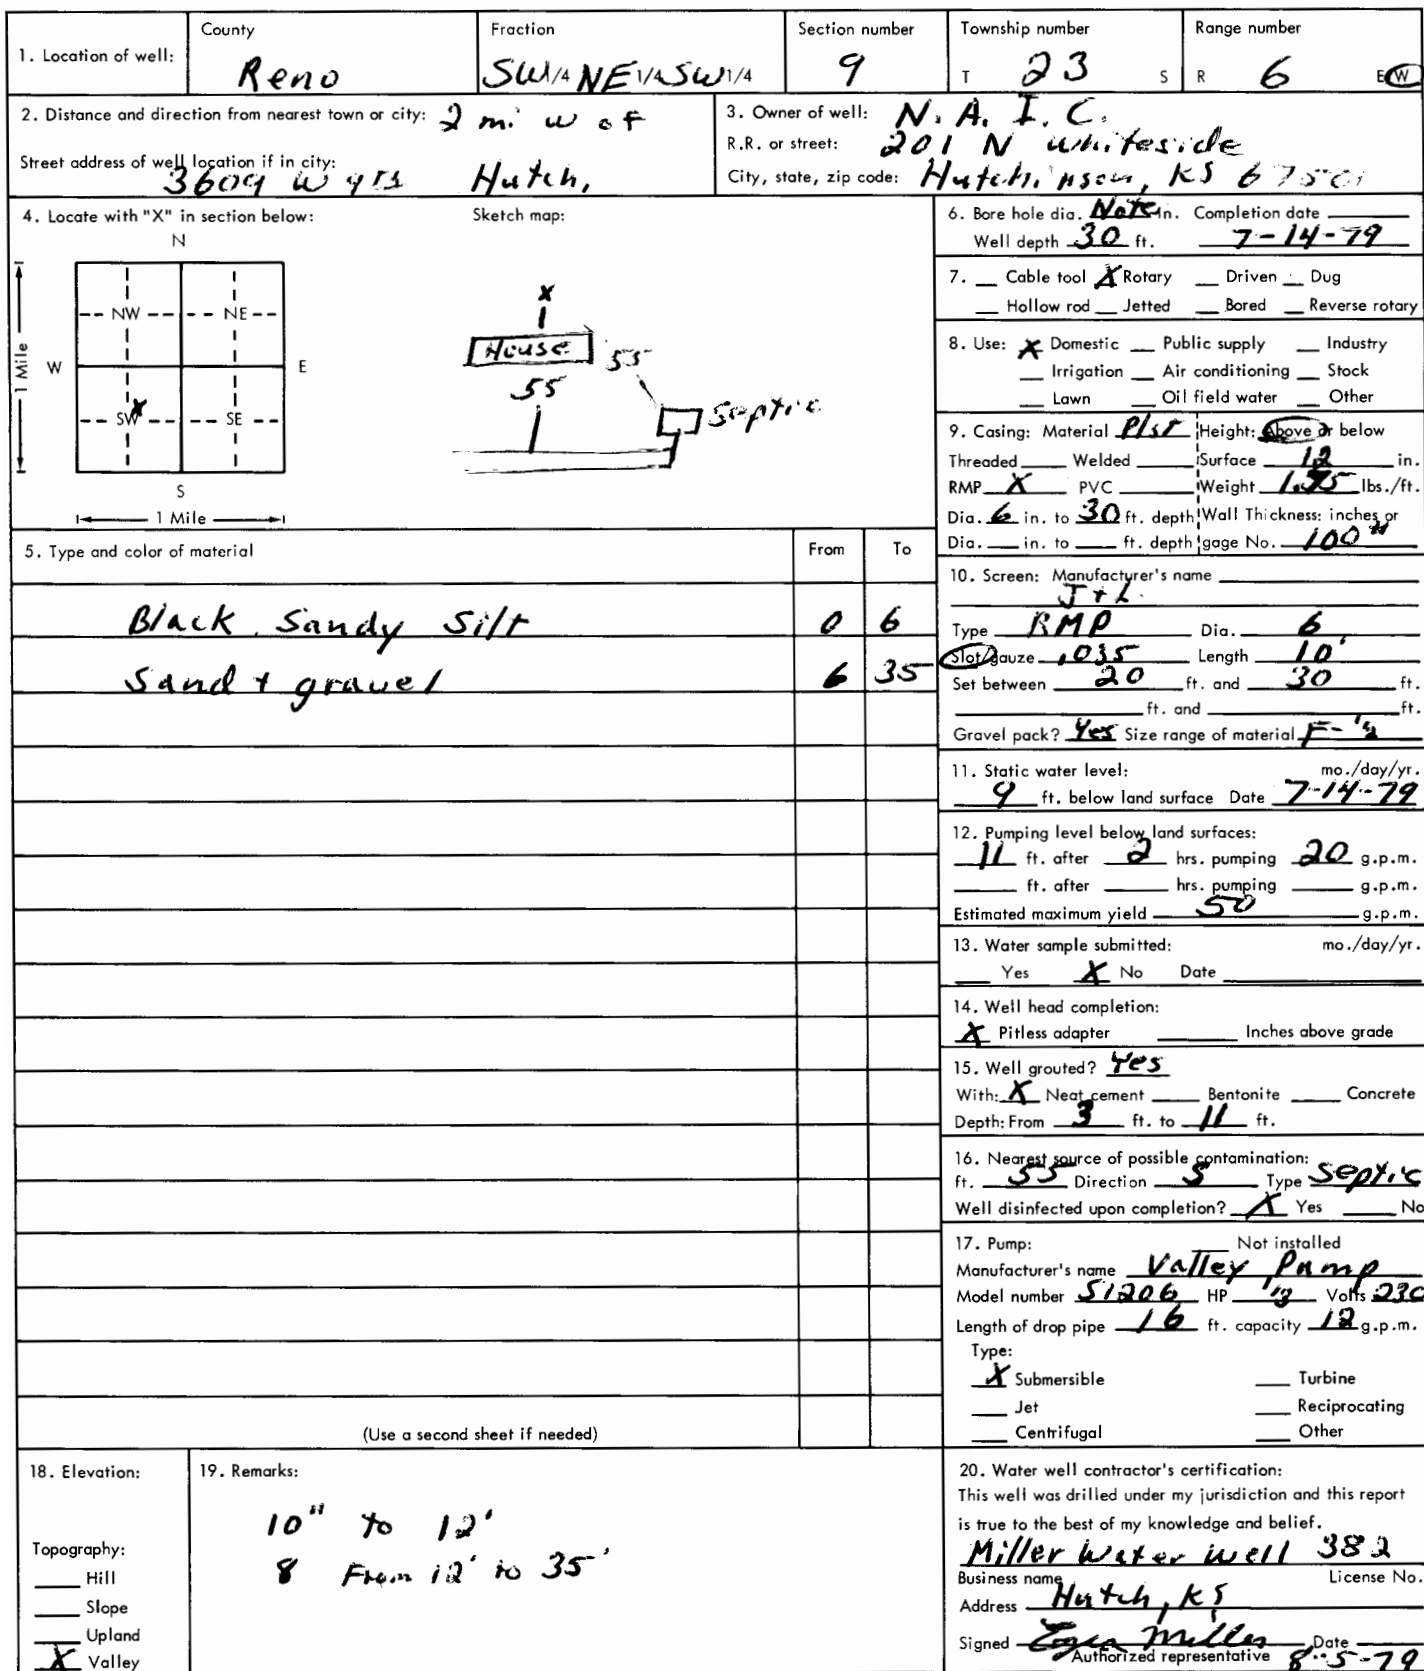 1. Location of well:
County
Reno
Fraction
SW 1/4 NE 1/4 SW 1/4
Section number
9
Township number
T 23 S
Range number
R 6 E W
2. Distance and direction from nearest town or city: 2 mi w of
Street address of well location if in city:
3609 W Hutch,
3. Owner of well: N. A. I. C.
R.R. or street: 201 N Whiteside
City, state, zip code: Hutchinson, KS 67501
4. Locate with "X" in section below:
N
NW NE
W E
X
SW SE
S
1 Mile
1 Mile
Sketch map:
X
House
55
55
Septic
5. Type and color of material From To
Black Sandy Silt 0 6
Sand + gravel 6 35
(Use a second sheet if needed)
6. Bore hole dia. Note in. Completion date
Well depth 30 ft. 7-14-79
7. Cable tool X Rotary Driven Dug
Hollow rod Jetted Bored Reverse rotary
8. Use: X Domestic Public supply Industry
Irrigation Air conditioning Stock
Lawn Oil field water Other
9. Casing: Material Plst Height: Above or below
Threaded Welded Surface 12 in.
RMP X PVC Weight lbs./ft.
Dia. 6 in. to 30 ft. depth Wall Thickness: inches or
Dia. in. to ft. depth gage No. 100"
10. Screen: Manufacturer's name
J + L
Type RMP Dia. 6
Slot/gauze .035 Length 10'
Set between 20 ft. and 30 ft.
ft. and ft.
Gravel pack? Yes Size range of material F-
11. Static water level: mo./day/yr.
9 ft. below land surface Date 7-14-79
12. Pumping level below land surfaces:
11 ft. after 2 hrs. pumping 20 g.p.m.
ft. after hrs. pumping g.p.m.
Estimated maximum yield 50 g.p.m.
13. Water sample submitted: mo./day/yr.
Yes X No Date
14. Well head completion:
X Pitless adapter Inches above grade
15. Well grouted? Yes
With: X Neat cement Bentonite Concrete
Depth: From 3 ft. to 11 ft.
16. Nearest source of possible contamination:
ft. 55 Direction S Type Septic
Well disinfected upon completion? X Yes No
17. Pump: Not installed
Manufacturer's name Valley Pump
Model number S1206 HP Volts 230
Length of drop pipe 16 ft. capacity 12 g.p.m.
Type:
X Submersible Turbine
Jet Reciprocating
Centrifugal Other
18. Elevation:
Topography:
Hill
Slope
Upland
X Valley
19. Remarks:
10" to 12'
8 From 12' to 35'
20. Water well contractor's certification:
This well was drilled under my jurisdiction and this report
is true to the best of my knowledge and belief.
Miller Water Well 382
Business name License No.
Address Hutch, KS
Signed Miller Date
Authorized representative 8-5-79